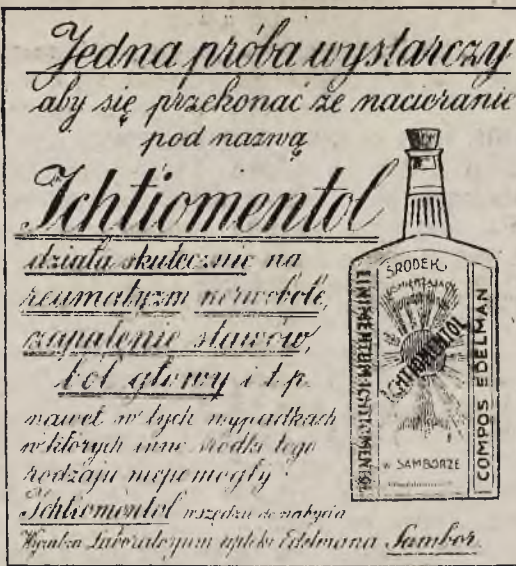 Jedna próba wystarczy
aby się przekonać że nacieranie
pod nazwą
Ichtiomentol
działa skutecznie na
reumatyzm nerwobóle,
zapalenie stawów,
ból głowy i t.p.
nawet w tych wypadkach
w których inne środki tego
rodzaju niepomogły
Ichtiomentol wszędzie do nabycia
Wyrabia Laboratoryum apteki Edelmana Sambor.
ŚRODEK
ICHTIOMENTOL
w SAMBORZE
LINIMENTUM ICHTIOMENTOL
COMPOS EDELMAN